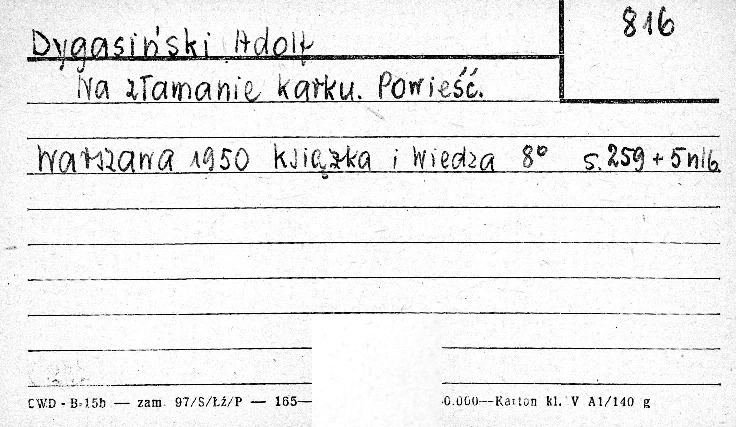 816
Dygasiński Adolf
Na złamanie karku. Powieść.
Warszawa 1950 Książka i Wiedza 8° s. 259 + 5 nlb.
CWD - B-15b — zam. 97/S/Łź/P — 165— 0.000—Karton kl. V A1/140 g